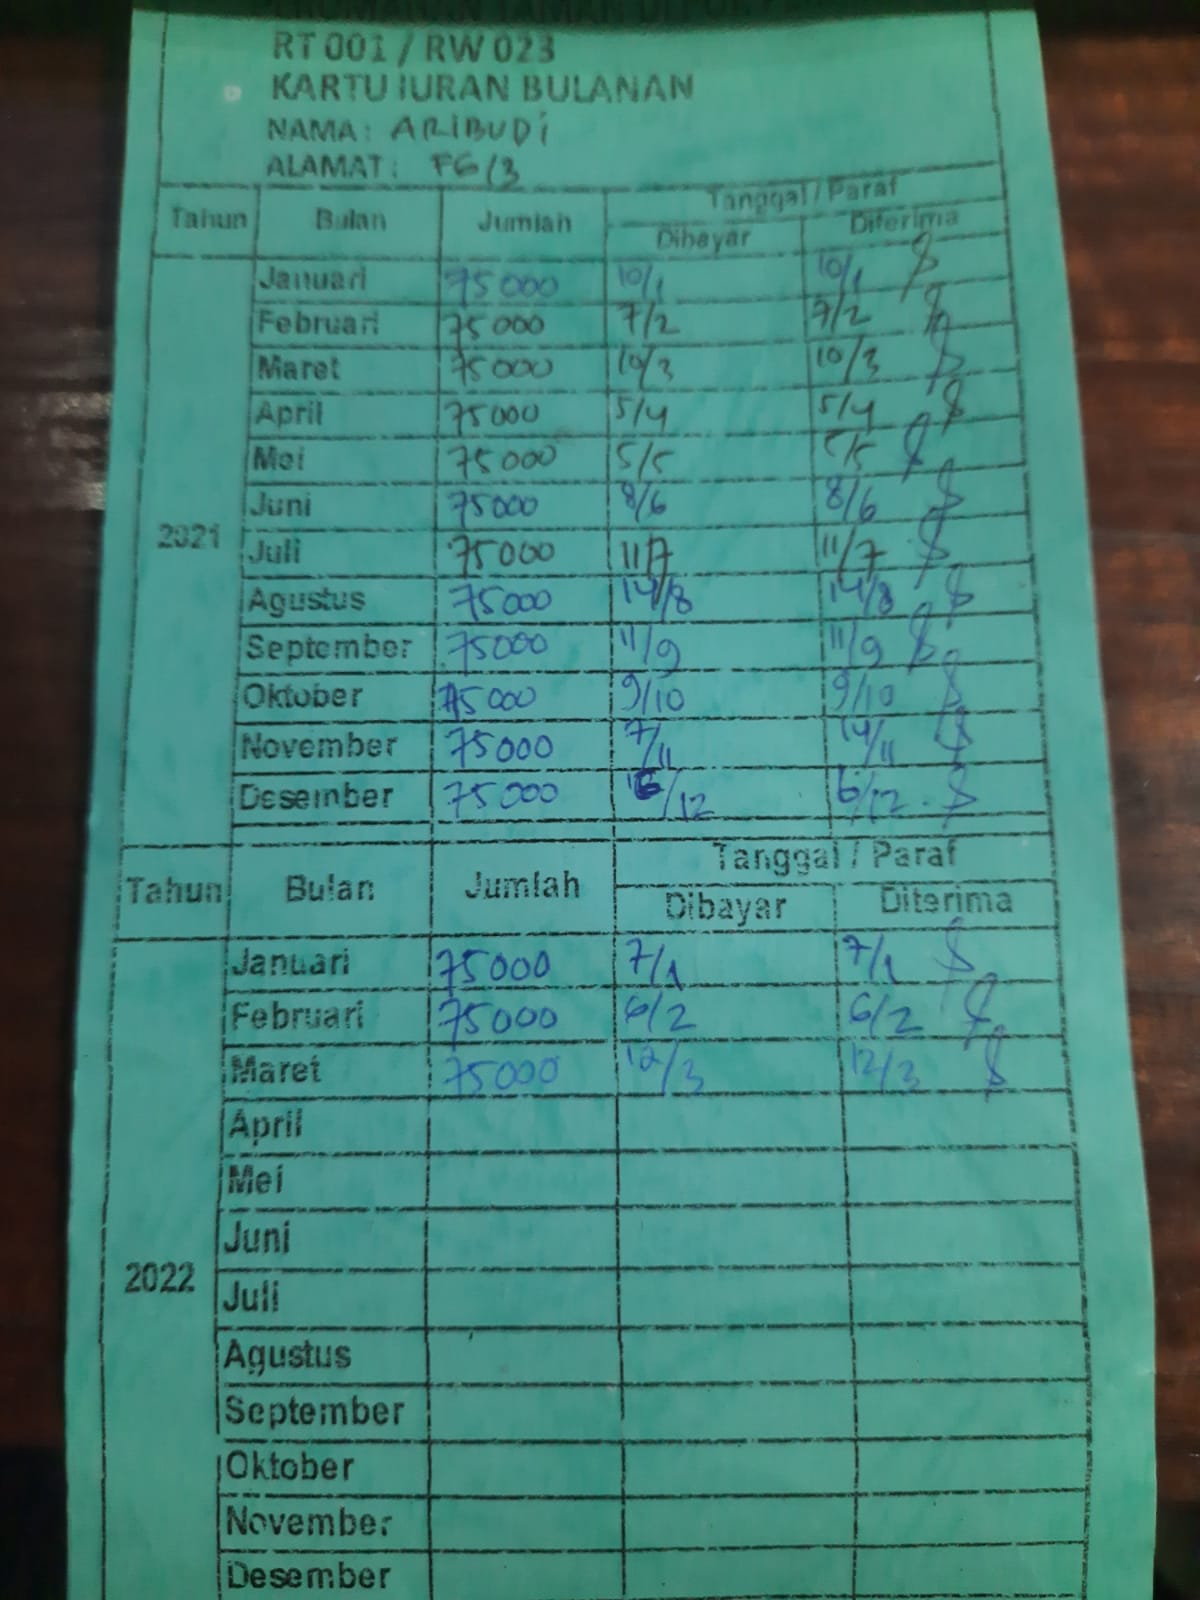 RT 001 / RW 023
KARTU IURAN BULANAN
NAMA : ARIBUDI
ALAMAT : F6/3
Tahun Bulan Jumlah Tanggal / Paraf
Dibayar Diterima
2021
Januari 75000 10/1 10/1
Februari 75000 7/2 7/2
Maret 75000 10/3 10/3
April 75000 5/4 5/4
Mei 75000 5/5 5/5
Juni 75000 8/6 8/6
Juli 75000 11/7 11/7
Agustus 75000 14/8 14/8
September 75000 11/9 11/9
Oktober 75000 9/10 9/10
November 75000 7/11 14/11
Desember 75000 6/12 6/12
Tahun Bulan Jumlah Tanggal / Paraf
Dibayar Diterima
2022
Januari 75000 7/1 7/1
Februari 75000 6/2 6/2
Maret 75000 12/3 12/3
April
Mei
Juni
Juli
Agustus
September
Oktober
November
Desember